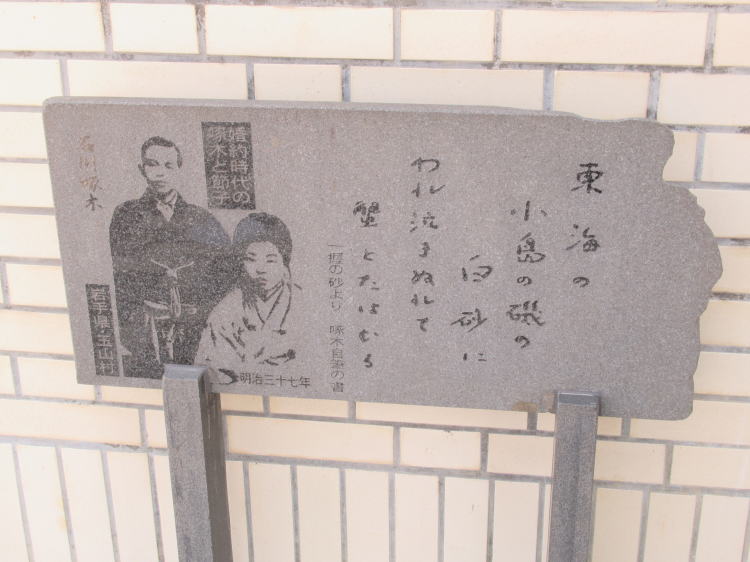 東海の
小島の磯の
白砂に
われ泣きぬれて
蟹とたはむる
一握の砂より　啄木自筆の書
婚約時代の
啄木と節子
明治三十七年
石川啄木
岩手県・玉山村